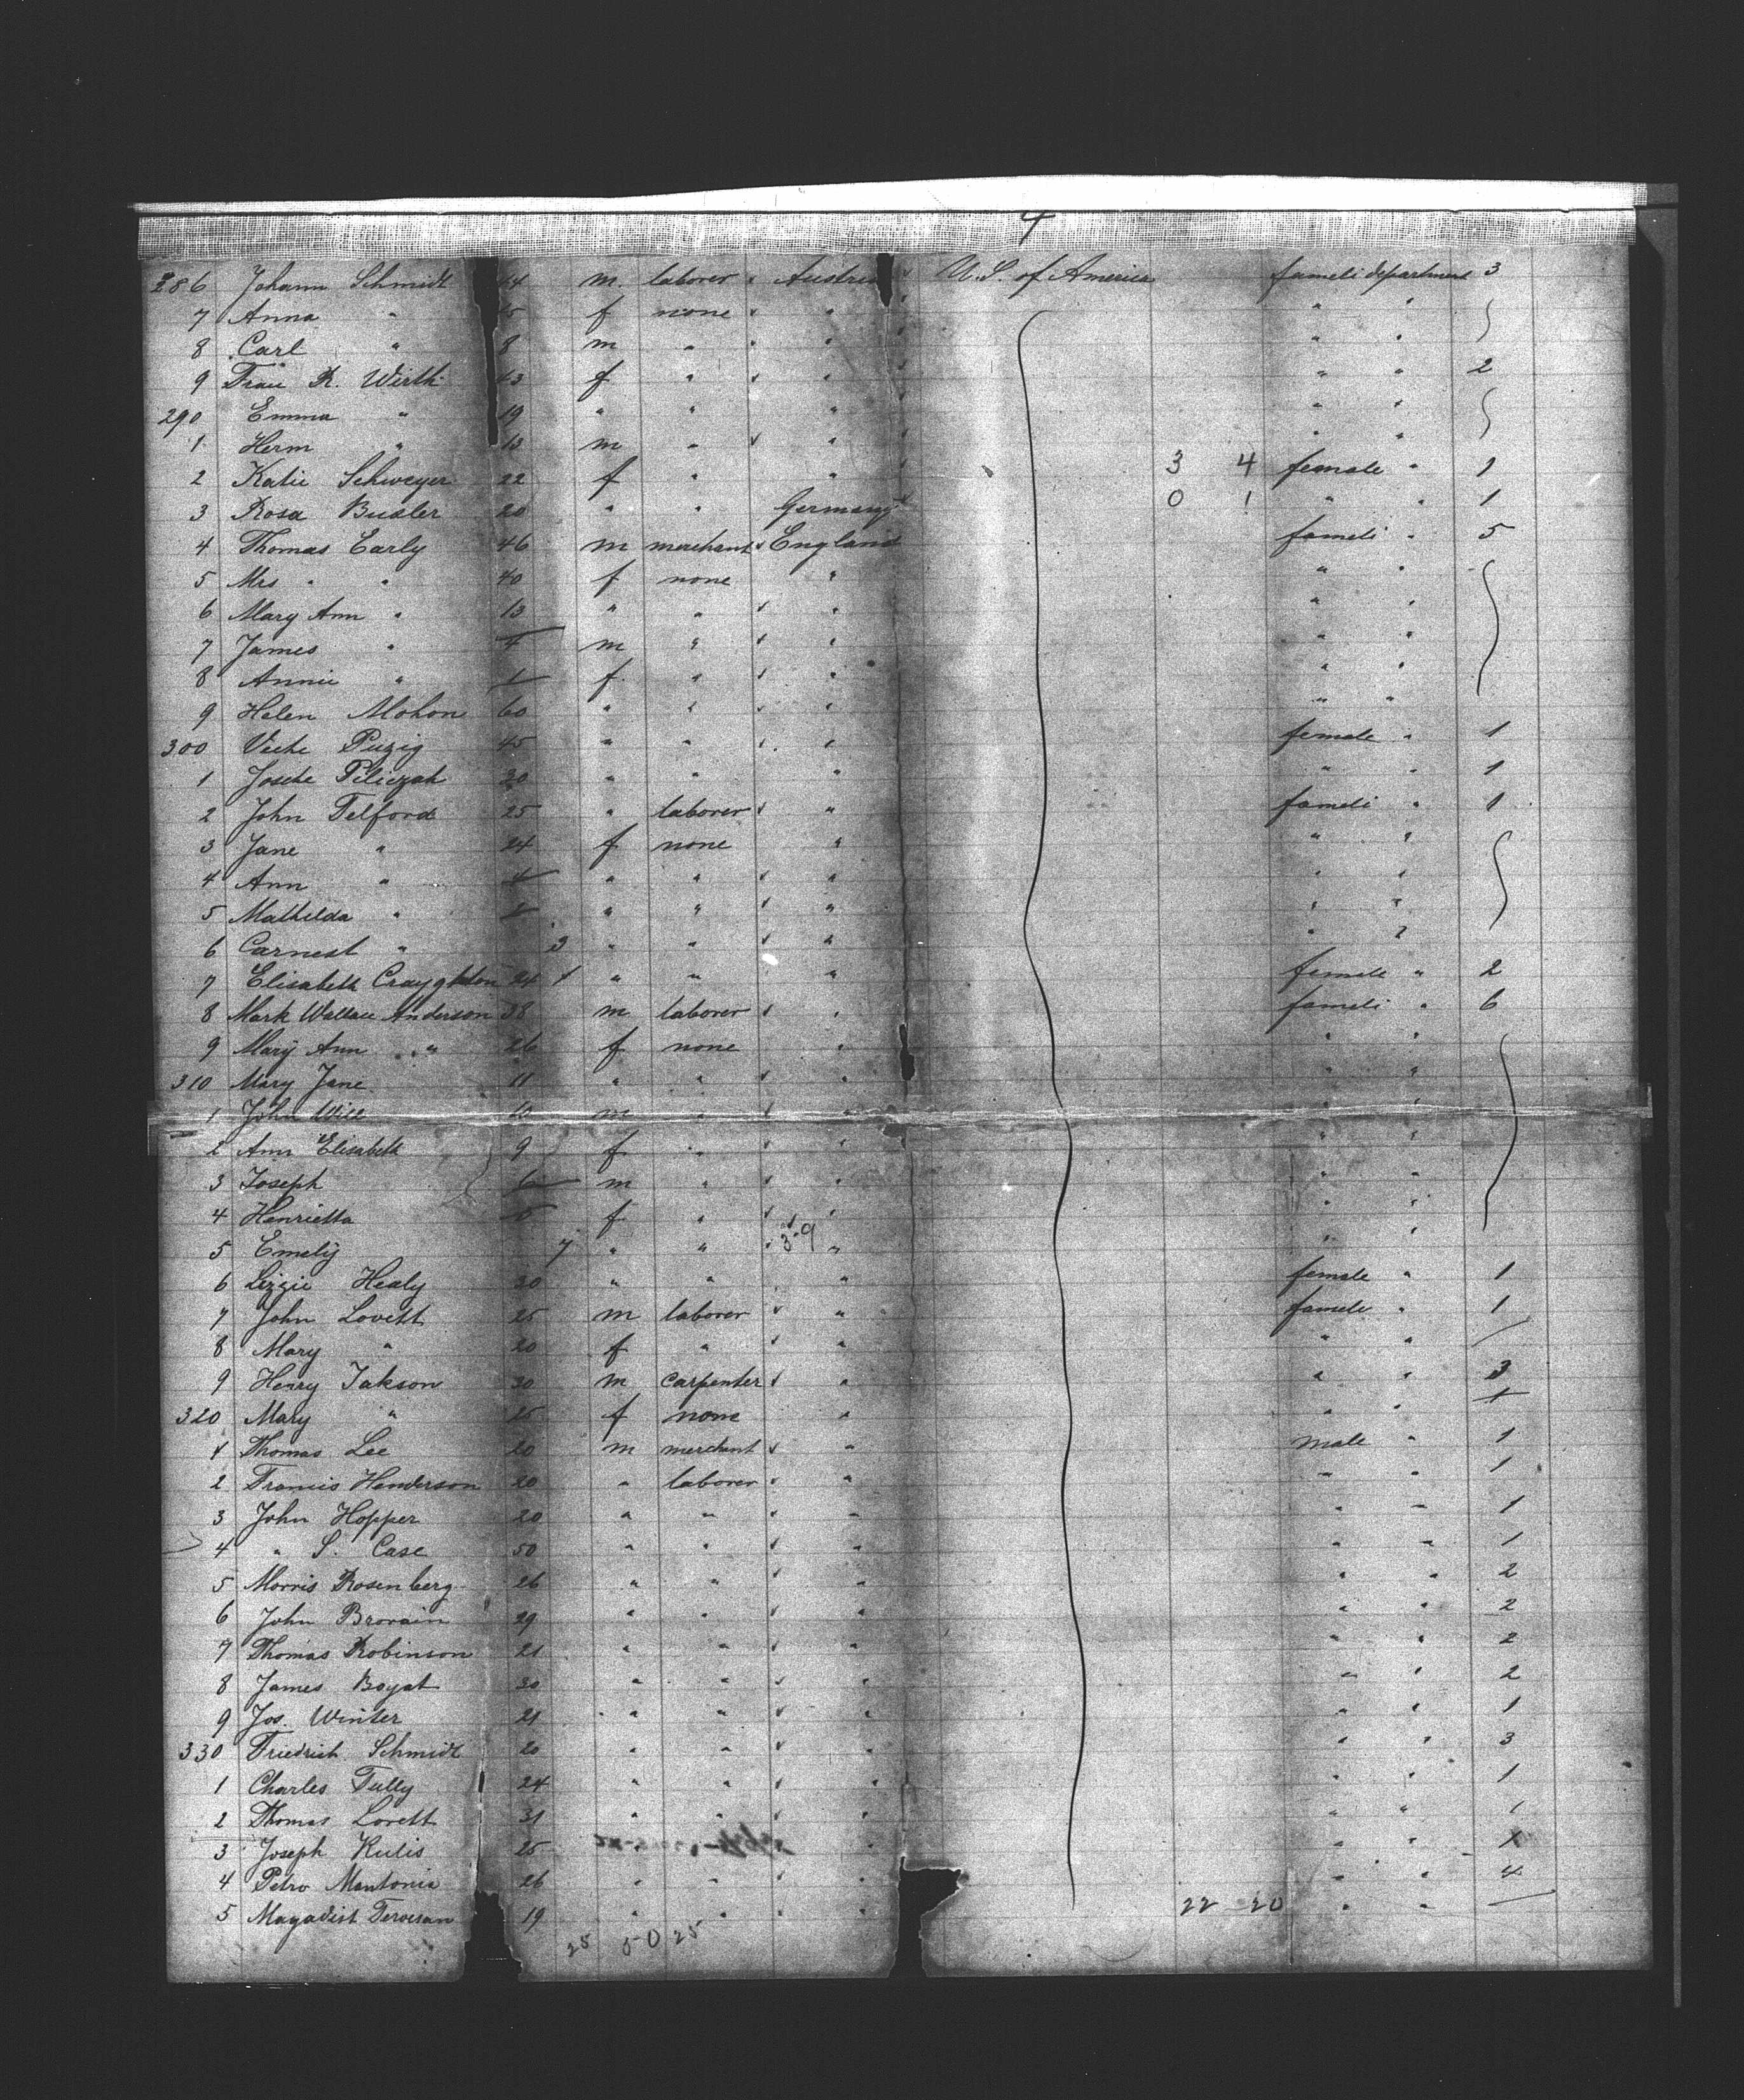 4
286 Johann Schmidt 44 m. laborer Austria U.S. of America fameli department 3
7 Anna " f none " " "
8 Carl " 8 m " " " "
9 Frau R. Wirth 43 f " " " " 2
290 Emma " 19 " " " " "
1 Herm " 13 m " " " "
2 Katie Schweyer 22 f " " 3 4 female " 1
3 Rosa Busler 20 " " Germany 0 1 " " 1
4 Thomas Early 46 m merchant England fameli " 5
5 Mrs " " 40 f none " " "
6 Mary Ann " 13 " " " " "
7 James " 4 m " " " "
8 Annie " 1 f " " " "
9 Helen Mohon 60 " " " " "
300 Veche Puzig 45 " " " female " 1
1 Josche Piliczah 30 " " " " " 1
2 John Telford 25 " laborer " fameli " 1
3 Jane " 24 f none " " "
4 Ann " 4 " " " " "
5 Mathilda " 2 " " " " "
6 Carnest " 3 " " " " "
7 Elisabeth Crayghton 24 " " " female " 2
8 Mark Wallace Anderson 38 m laborer " fameli " 6
9 Mary Ann " 26 f none " " "
310 Mary Jane 11 " " " " "
1 John Will 10 m " " " "
2 Ann Elisabeth 9 f " " " "
3 Joseph 6 m " " " "
4 Henrietta f " " " "
5 Emely 7 " " 3-9 " " "
6 Lizzie Healy 20 " " " female " 1
7 John Lovett 25 m laborer " fameli " 1
8 Mary " 20 f " " " "
9 Henry Jakson 30 m carpenter " " " 3
320 Mary " 25 f none " " " 1
1 Thomas Lee 20 m merchant " male " 1
2 Francis Henderson 20 " laborer " " " 1
3 John Hopper 20 " " " " " 1
4 " S. Case 50 " " " " " 1
5 Morris Rosenberg 26 " " " " " 2
6 John Brovain 29 " " " " " 2
7 Thomas Robinson 21 " " " " " 2
8 James Boyat 30 " " " " " 2
9 Jos. Winter 21 " " " " " 1
330 Friedrich Schmidt 20 " " " " " 3
1 Charles Tully 24 " " " " " 1
2 Thomas Lovett 31 " " " " " 1
3 Joseph Kulis 25 " " " " "
4 Petro Mantonia 26 " " " " " 4
5 Magadist Terresan 19 " " " 22 20 " "
25 50 25